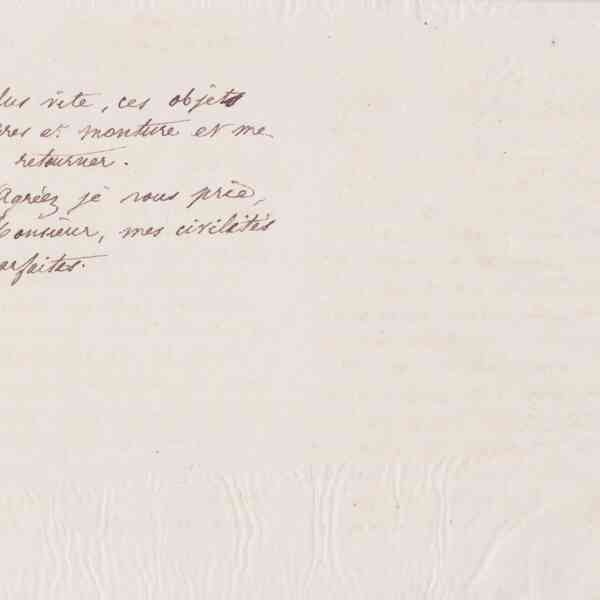 lus vite, ces objets
res et monture et me
retourner.
Agréez je vous prie,
onsieur, mes civilités
arfaites.